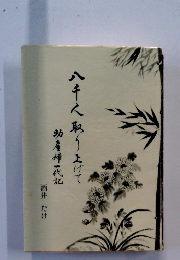 八千人取り上げて
助産婦一代記
酒井 たけ